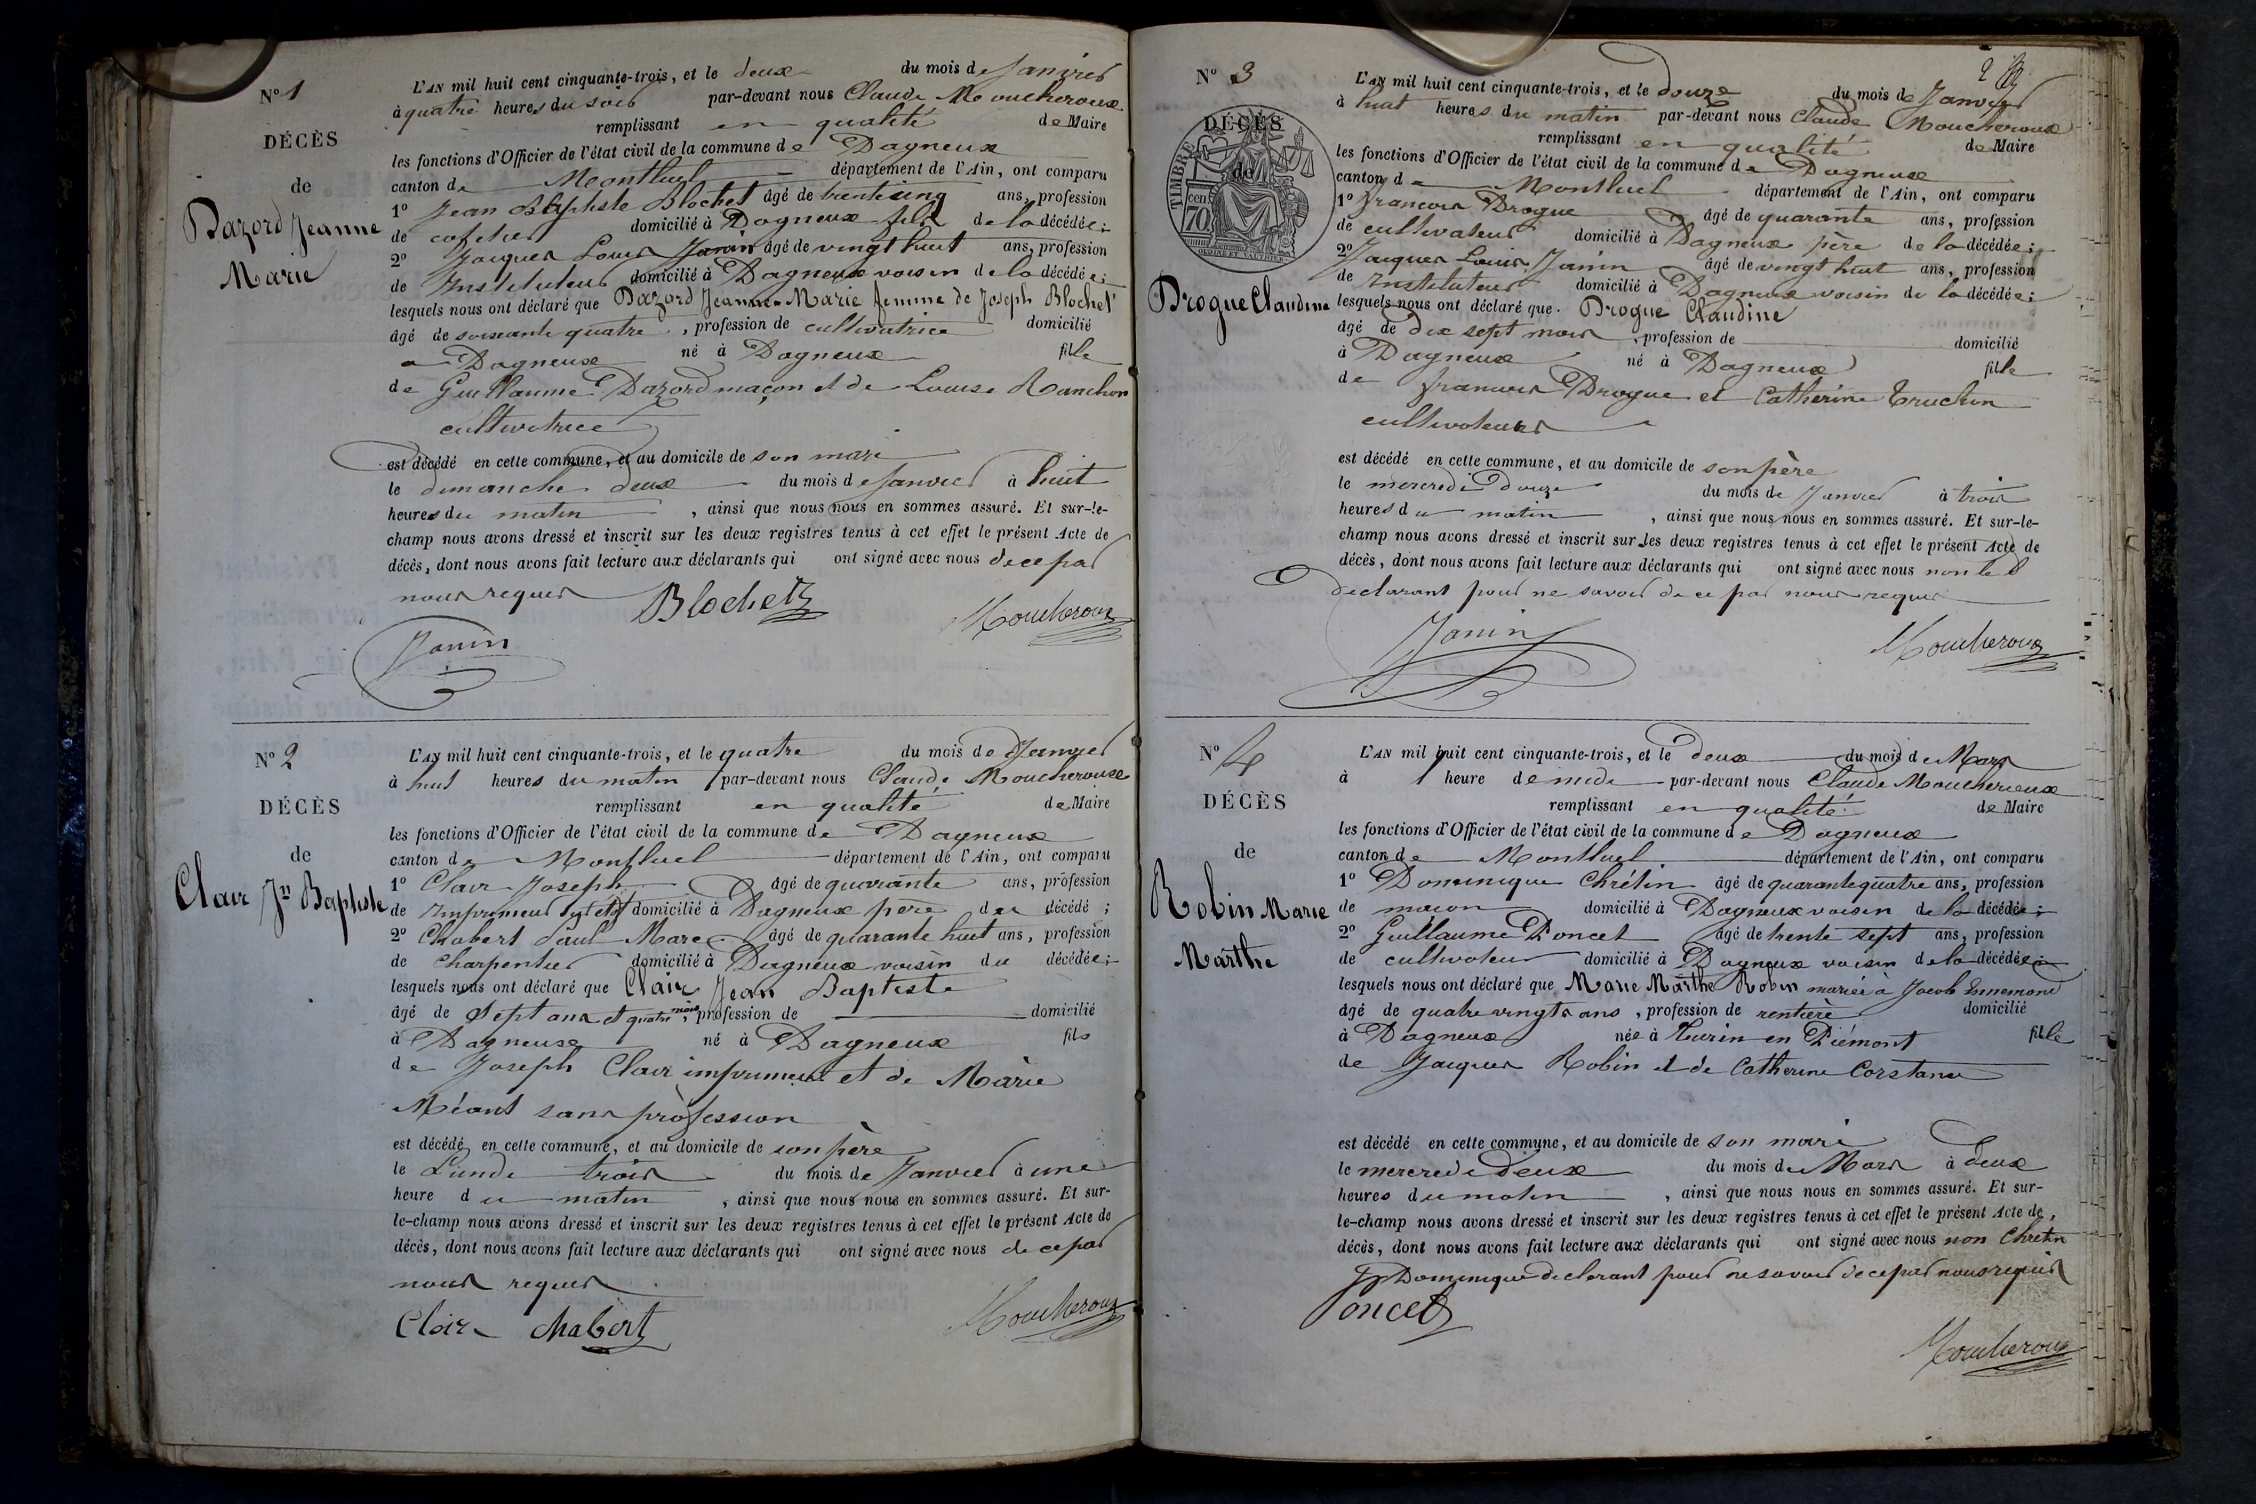 N° 1
DÉCÈS
de
Dazord Jeanne
Marie
L'AN mil huit cent cinquante-trois, et le deux du mois de Janvier
à quatre heures du soir par-devant nous Claude Moucheroux
remplissant en qualité de Maire
les fonctions d'Officier de l'état civil de la commune de Dagneux
canton de Montluel département de l'Ain, ont comparu
1° Jean Baptiste Blochet âgé de trente cinq ans, profession
de cafetier domicilié à Dagneux fils de la décédée;
2° Jacques Louis Janin âgé de vingt huit ans, profession
de Instituteur domicilié à Dagneux voisin de la décédée;
lesquels nous ont déclaré que Dazord Jeanne-Marie femme de Joseph Blochet
âgé de soixante quatre, profession de cultivatrice domicilié
a Dagneux né à Dagneux fille
de Guillaume Dazord maçon et de Louise Ranchon
cultivatrice
est décédé en cette commune, et au domicile de son mari
le dimanche deux du mois de Janvier à huit
heures du matin, ainsi que nous nous en sommes assuré. Et sur-le-
champ nous avons dressé et inscrit sur les deux registres tenus à cet effet le présent Acte de
décès, dont nous avons fait lecture aux déclarants qui ont signé avec nous de ce par
nous requis
Blochet
Moucheroux
Janin
N° 2
DÉCÈS
de
Clair Jn Baptiste
L'AN mil huit cent cinquante-trois, et le quatre du mois de Janvier
à huit heures du matin par-devant nous Claude Moucheroux
remplissant en qualité de Maire
les fonctions d'Officier de l'état civil de la commune de Dagneux
canton de Montluel département de l'Ain, ont comparu
1° Clair Joseph âgé de quarante ans, profession
de Imprimeur domicilié à Dagneux père du décédé;
2° Chabert Paul Marc âgé de quarante huit ans, profession
de Charpentier domicilié à Dagneux voisin du décédée;
lesquels nous ont déclaré que Clair Jean Baptiste
âgé de sept ans et quatre mois, profession de domicilié
à Dagneux né à Dagneux fils
de Joseph Clair imprimeur et de Marie
Méant sans profession
est décédé en cette commune, et au domicile de son père
le Lundi trois du mois de Janvier à une
heure du matin, ainsi que nous nous en sommes assuré. Et sur-
le-champ nous avons dressé et inscrit sur les deux registres tenus à cet effet le présent Acte de
décès, dont nous avons fait lecture aux déclarants qui ont signé avec nous de ce par
nous requis
Clair Chabert
Moucheroux
2
N° 3
DÉCÈS
de
TIMBRE
70
Drogue Claudine
L'AN mil huit cent cinquante-trois, et le douze du mois de Janvier
à huit heures du matin par-devant nous Claude Moucheroux
remplissant en qualité de Maire
les fonctions d'Officier de l'état civil de la commune de Dagneux
canton de Montluel département de l'Ain, ont comparu
1° francois Drogue âgé de quarante ans, profession
de cultivateur domicilié à Dagneux père de la décédée;
2° Jacques Louis Janin âgé de vingt huit ans, profession
de Instituteur domicilié à Dagneux voisin de la décédée;
lesquels nous ont déclaré que Drogue Claudine
âgé de dix sept mois, profession de domicilié
à Dagneux né à Dagneux fille
de francois Drogue et Catherine Truchon
cultivateurs
est décédé en cette commune, et au domicile de son père
le mercredi douze du mois de Janvier à trois
heures du matin, ainsi que nous nous en sommes assuré. Et sur-le-
champ nous avons dressé et inscrit sur les deux registres tenus à cet effet le présent Acte de
décès, dont nous avons fait lecture aux déclarants qui ont signé avec nous non le 1
declarant pour ne savoir de ce par nous requis
Janin
Moucheroux
N° 4
DÉCÈS
de
Robin Marie
Marthe
L'AN mil huit cent cinquante-trois, et le deux du mois de Mars
à 1 heure de midi par-devant nous Claude Moucherieux
remplissant en qualité de Maire
les fonctions d'Officier de l'état civil de la commune de Dagneux
canton de Montluel département de l'Ain, ont comparu
1° Dominique Chrétin âgé de quarante quatre ans, profession
de maçon domicilié à Dagneux voisin de la décédée;
2° Guillaume Poncet âgé de trente sept ans, profession
de cultivateur domicilié à Dagneux voisin de la décédée;
lesquels nous ont déclaré que Marie Marthe Robin mariée à Jacob Ennemond
âgé de quatre vingts ans, profession de rentière domicilié
à Dagneux née à Turin en Piémont fille
de Jacques Robin et de Catherine Corstance
est décédé en cette commune, et au domicile de son mari
le mercredi deux du mois de Mars à deux
heures du matin, ainsi que nous nous en sommes assuré. Et sur-
le-champ nous avons dressé et inscrit sur les deux registres tenus à cet effet le présent Acte de
décès, dont nous avons fait lecture aux déclarants qui ont signé avec nous non Chretin
Dominique declarant pour ne savoir de ce par nous requis
Poncet
Moucheroux